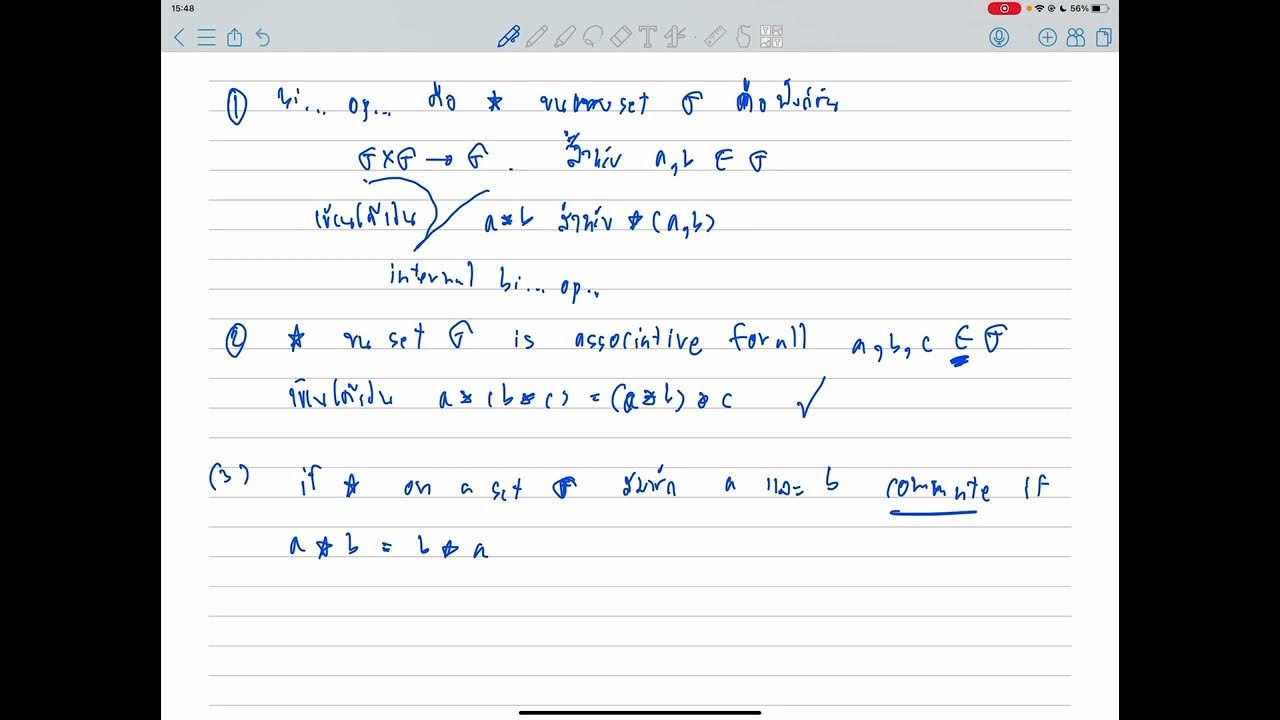 15:48
56%
① bi... op... คือ ★ บน set G คือฟังก์ชัน
G×G → G . สำหรับ a,b ∈ G
เขียนได้เป็น a★b สำหรับ ★(a,b)
internal bi... op..
② ★ บน set G is associative for all a,b,c ∈ G
เขียนได้เป็น a★(b★c) = (a★b)★c ✓
(3) if ★ on a set G สมาชิก a และ b commute if
a★b = b★a